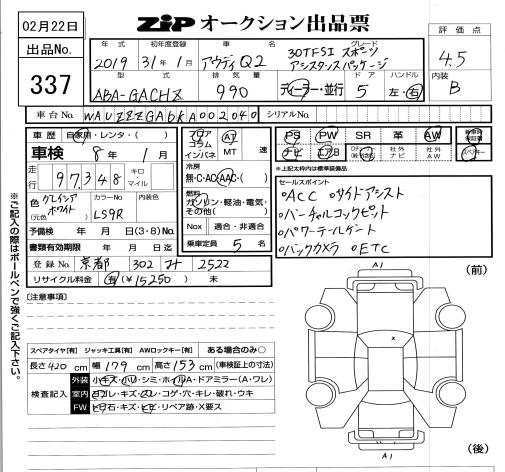 02月22日
ZiP オークション出品票
出品No.
337
年式 初年度登録 車名 グレード
2019 31年1月 アウディQ2 30TFSI スポーツ
アシスタンスパッケージ
型式 排気量 ドア ハンドル
ABA-GACHZ 990 ディーラー・並行 5 左・右
評価点
4.5
内装
B
車台No. WAUZZZGA6KA002040 シリアルNo.
車歴 自家用・レンタ・( )
車検 8年 1月
走行 97,348 キロ マイル
色 グレイシアホワイト (元色) カラーNo. LS9R 内装色
予備検 年 月 日(3・8)No.
書類有効期限 年 月 日迄
登録No. 京都 302 2522
リサイクル料金 有(¥15250) 未
フロア コラム インパネ AT MT 速
冷房
無・C・AC・AAC・( )
燃料
ガソリン・軽油・電気・その他( )
Nox 適合・非適合
乗車定員 5 名
PS PW SR 革 AW
ナビ エアB 社外ナビ 社外AW スペアキー
※上記太枠内は標準装備品
セールスポイント
○ACC ○サイドアシスト
○バーチャルコックピット
○パワーテールゲート
○バックカメラ ○ETC
[注意事項]
スペアタイヤ[有] ジャッキ工具[有] AWロックキー[有] ある場合のみ○
長さ420cm 幅179cm 高さ153cm (車検証上の寸法)
検査記入
外装 小キズ・小U・シミ・ホイルA・ドアミラー(A・ワレ)
室内 ヨゴレ・キズ・スレ・コゲ・穴・キレ・破れ・ウキ
FW ヒ石・キズ・ヒビ・リペア跡・X要ス
※ご記入の際はボールペンで強くご記入下さい。
A1
(前)
x
A1
(後)